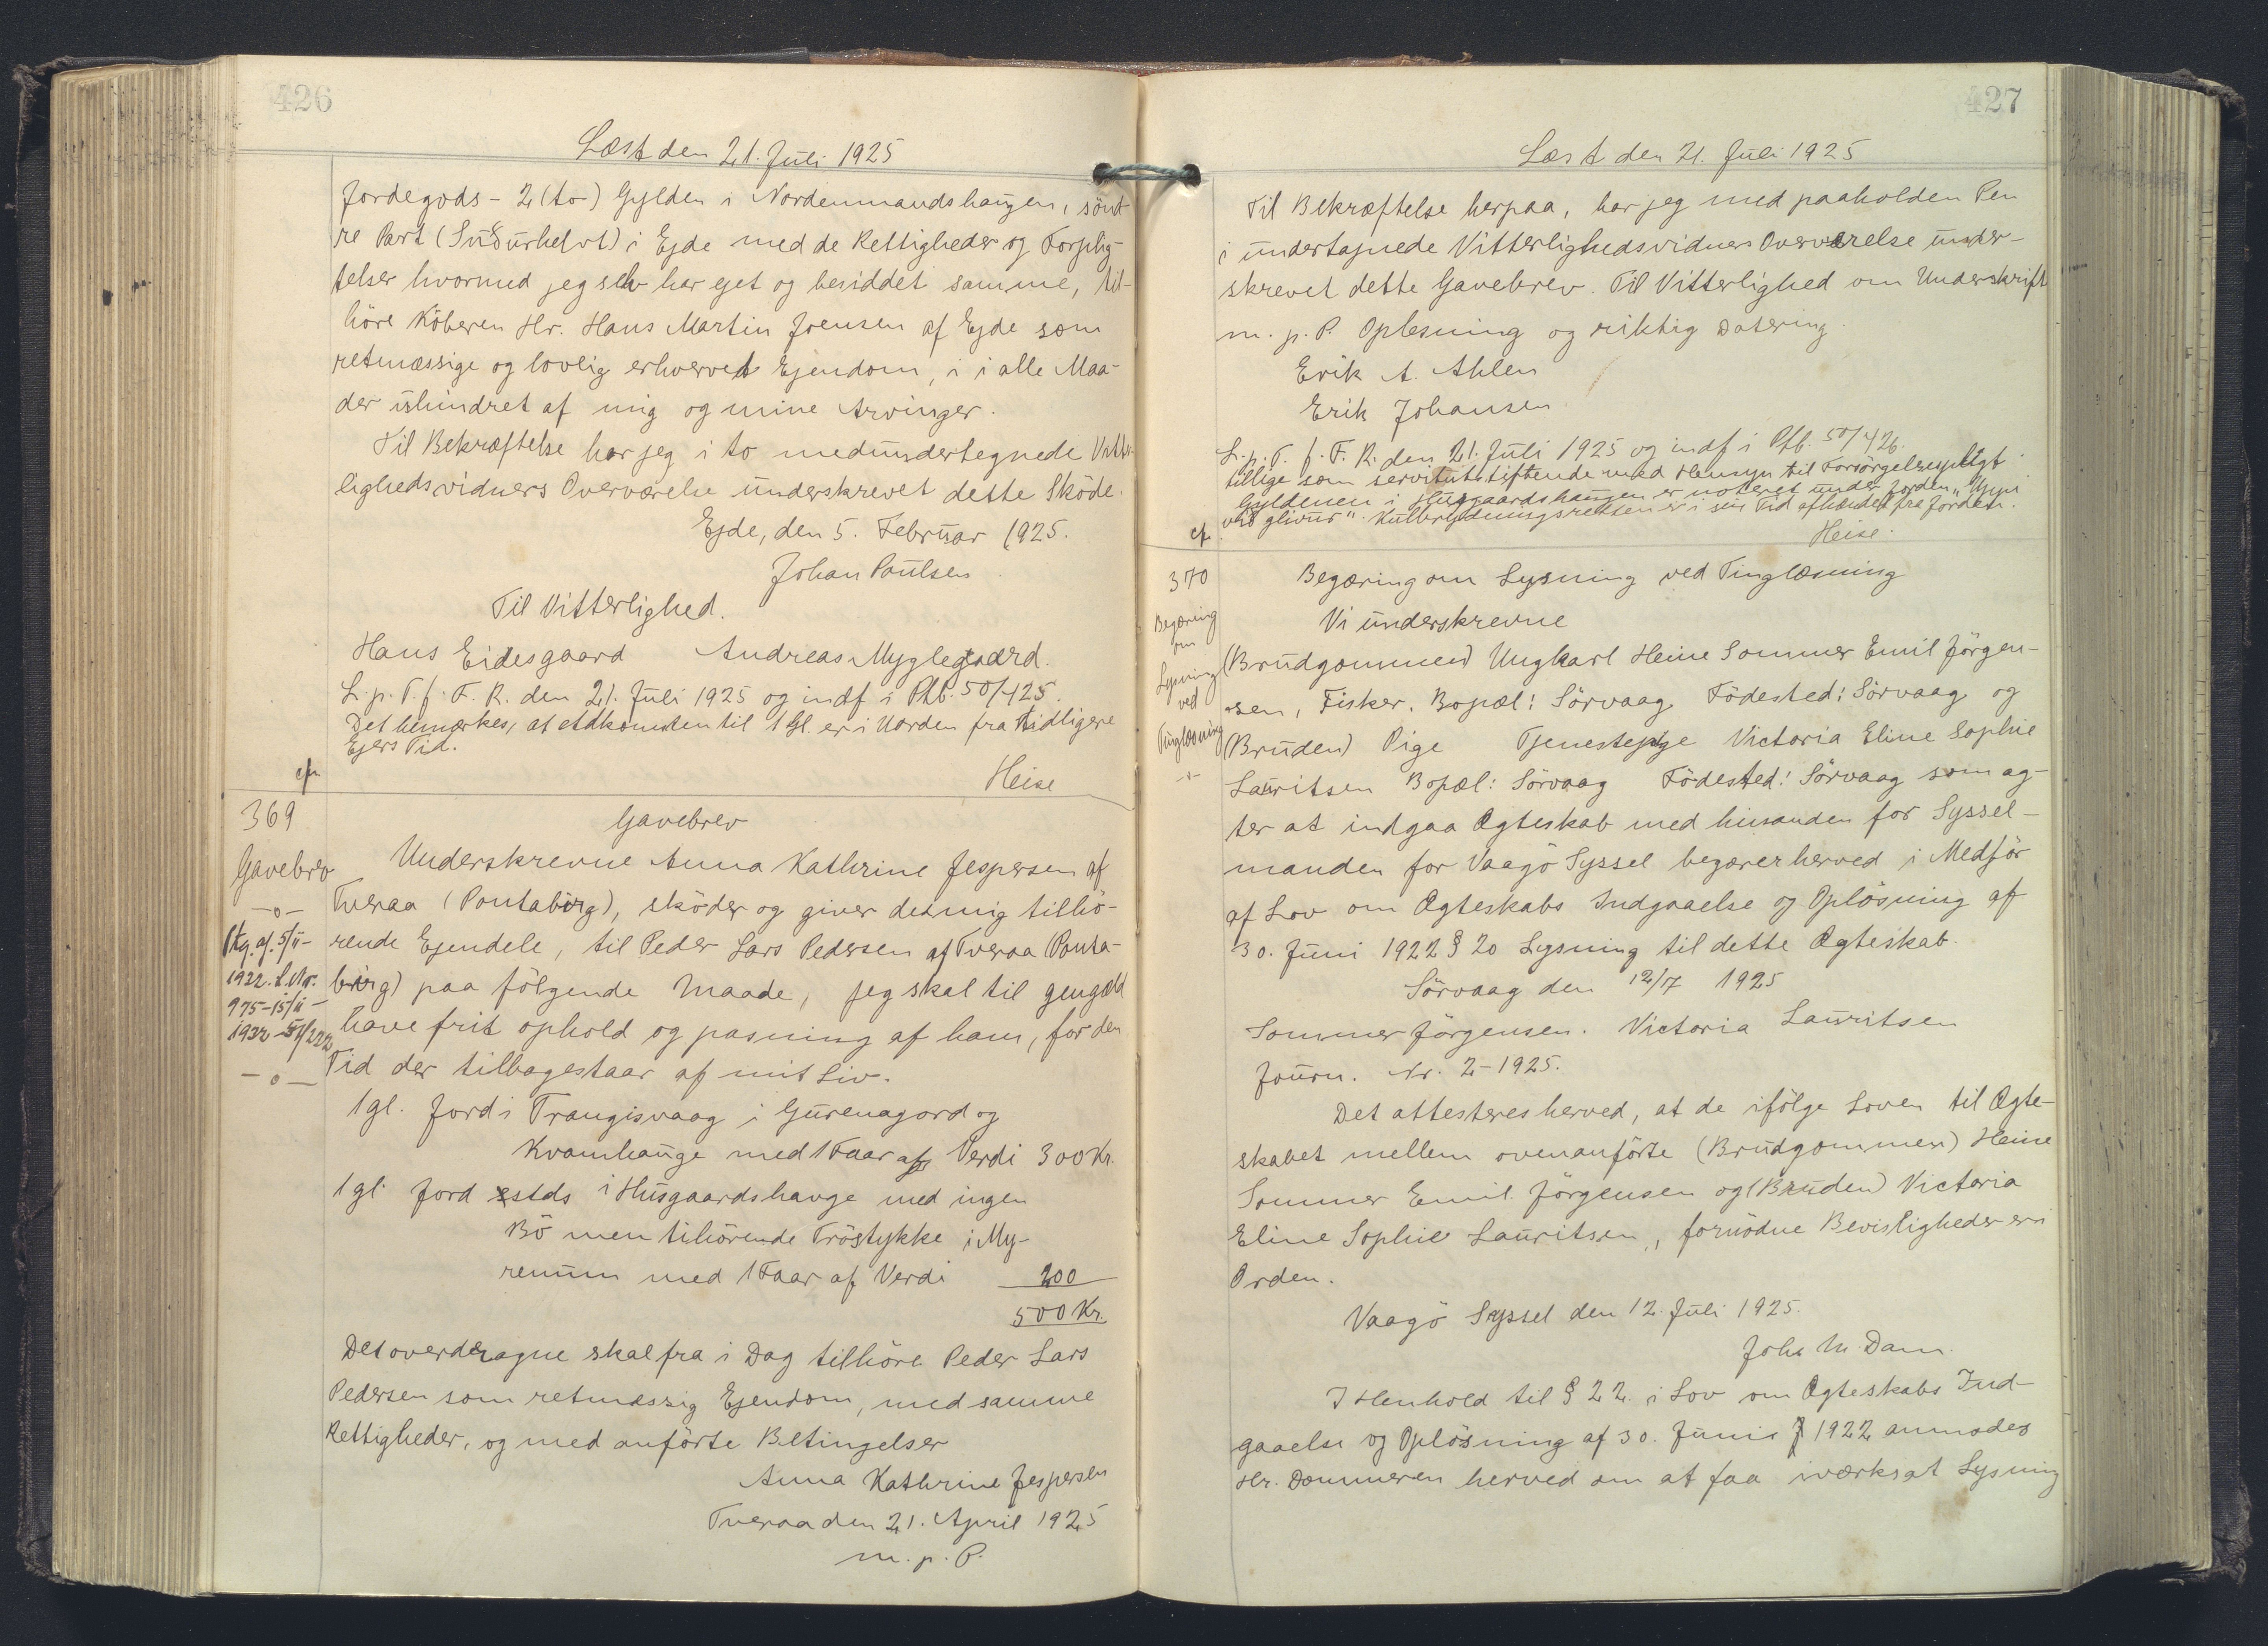 426
Læst den 21. Juli 1925
Jordegods - 2 (to) Gylden i Nordenmandshaugen, sönd-
re Part (Suðurhelvt) i Ejde med de Rettigheder og Forplig-
telser hvormed jeg selv har ejet og besiddet samme, til-
höre Köberen Hr. Hans Martin Joensen af Ejde som
retmæssige og lovlig erhvervet Ejendom, i i alle Maa-
der uhindret af mig og mine Arvinger.
Til Bekræftelse har jeg i to medundertegnede Vitter-
lighedsvidners Overværelse underskrevet dette Sköde.
Ejde, den 5. Februar 1925.
Johan Poulsen
Til Vitterlighed.
Hans Eidesgaard Andreas Myglegaard.
L. p. T. f. F. R. den 21. Juli 1925 og indf i Ptb. 50/425.
Det bemærkes, at Adkomsten til 1 Gl. er i Uorden fra tidligere
Ejers Tid.
Heise
cfr
369
Gavebrev
—o—
Ptg. af. 5/11-
1922. L. Nr.
975-15/11-
1932-51/222
—o—
Gavebrev
Underskrevne Anna Kathrine Jespersen af
Tveraa (Pontaburg), sköder og giver det mig tilhö-
rende Ejendele, til Peder Lars Pedersen af Tveraa (Ponta-
burg) paa fölgende Maade, jeg skal til gengæld
have frit ophold og pasning af ham, for den
Tid der tilbagestaar af mit Liv.
1 gl. Jord i Trangisvaag i Gurenagord og
Kvamhauge med 1 Faar af Verdi 300 Kr.
1 gl. Jord estds i Husgaardshavge med ingen
Bö men tilhörende Tröstykke i My-
renum med 1 Faar af Verdi 200
500 Kr.
Det overdragne skal fra i Dag tilhöre Peder Lars
Pedersen som retmæssig Ejendom, med samme
Rettigheder, og med anförte Betingelser
Anna Kathrine Jespersen
Tveraa den 21. April 1925
m. p. P.
427
Læst den 21. Juli 1925
Til Bekræftelse herpaa, har jeg med paaholden Pen
i undertegnede Vitterlighedsvidners Overværelse under-
skrevet dette Gavebrev. Til Vitterlighed om Underskrift
m. p. P. Oplæsning og riktig Datering.
Erik A. Ahlen
Erik Johansen
L. p. T. f. F. R. den 21. Juli 1925 og indf i Ptb. 50/426.
tillige som servitutstiftende med Hensyn til Forsörgelsespligt.
Gyldenen i Husgaardshaugen er noteret under Jorden "Uppi
við glivur". Kulbrydningsretten er i sin Tid afhændet fra Jorden.
Heise.
cfr
370
Begæring
om
Lysning
ved
Tinglæsning
-o-
Begæring om Lysning ved Tinglæsning
Vi underskrevne
(Brudgommen) Ungkarl Heine Sommer Emil Jörgen-
sen, Fisker. Bopæl: Sörvaag Födested: Sörvaag og
(Bruden) Pige Tjenestepige Victoria Eline Sophie
Lauritsen Bopæl: Sörvaag Födested: Sörvaag som ag-
ter at indgaa Ægteskab med hinanden for Syssel-
manden for Vaagö Syssel begærer herved i Medför
af Lov om Ægteskabs Indgaaelse og Oplösning af
30. Juni 1922 § 20 Lysning til dette Ægteskab.
Sörvaag den 12/7 1925
Sommer Jörgensen. Victoria Lauritsen
Journ. Nr. 2-1925.
Det attesteres herved, at de ifölge Loven til Ægte-
skabet mellem ovenanförte (Brudgommen) Heine
Sommer Emil Jörgensen og (Bruden) Victoria
Eline Sophie Lauritsen, fornödne Bevisligheder er i
Orden.
Vaagö Syssel den 12. Juli 1925.
Johs M. Dam.
I Henhold til § 22. i Lov om Ægteskabs Ind-
gaaelse og Oplösning af 30. Juni 1922 anmodes
Hr. Dommeren herved om at faa iværksat Lysning